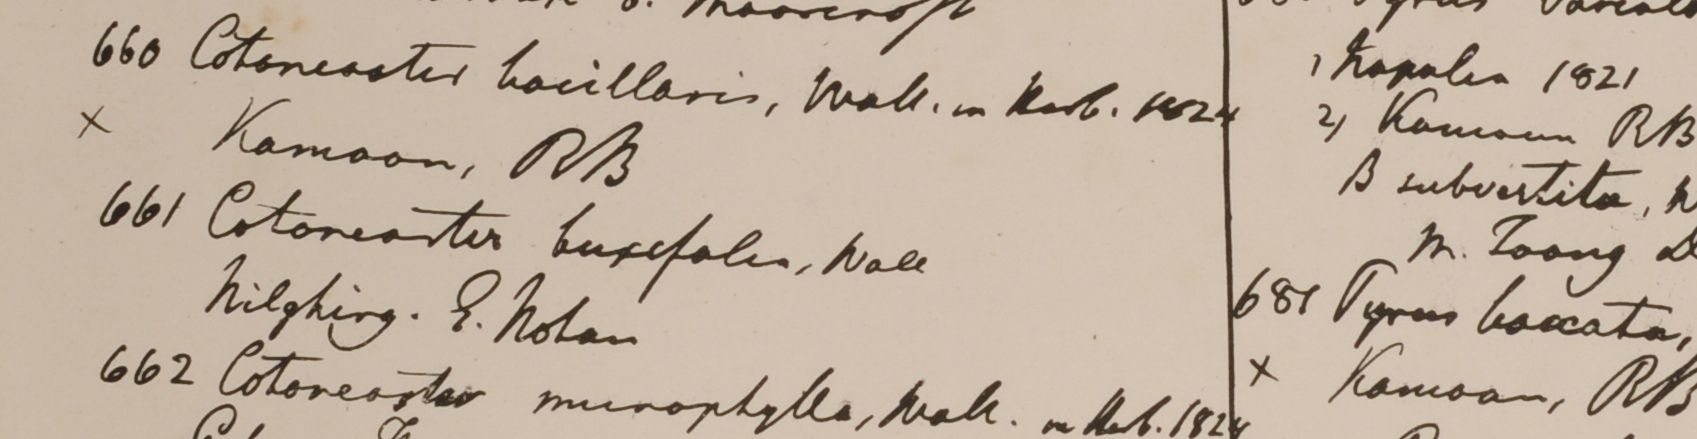 Moorcroft
660 Cotoneaster bacillaris, Wall. in Herb. 1824
× Kamaon, RB
661 Cotoneaster buxifolia, Wall
Nilghiry. E. Noton
662 Cotoneaster microphylla, Wall. in Herb. 1824
Pyrus
1, Napalia 1821
2, Kamaon RB
B subvestita, W
M. Toong D
681 Pyrus baccata,
× Kamaon, RB